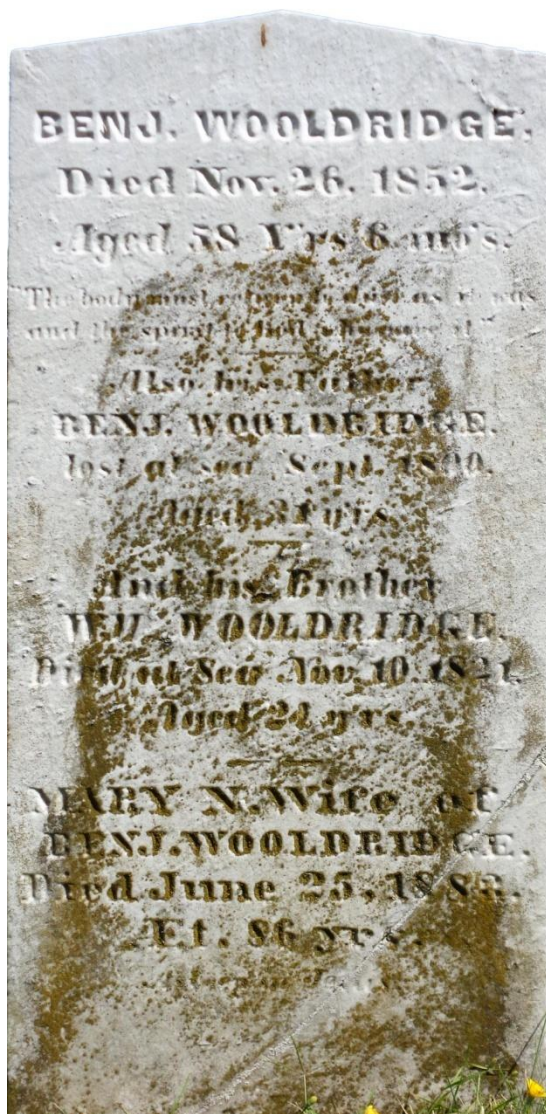 BENJ. WOOLDRIDGE.
Died Nov. 26. 1852.
Aged 58 Y'rs 6 mo's.
"The body must return to dust as it was
and the spirit to God who gave it."
Also his Father
BENJ. WOOLDRIDGE.
lost at sea Sept. 1800.
Aged 31 yrs.
And his Brother
WM WOOLDRIDGE.
Died at Sea Nov. 10. 1821.
Aged 24 yrs.
MARY N. Wife of
BENJ. WOOLDRIDGE.
Died June 25, 1882.
Æt. 86 yrs.
Asleep in Jesus.